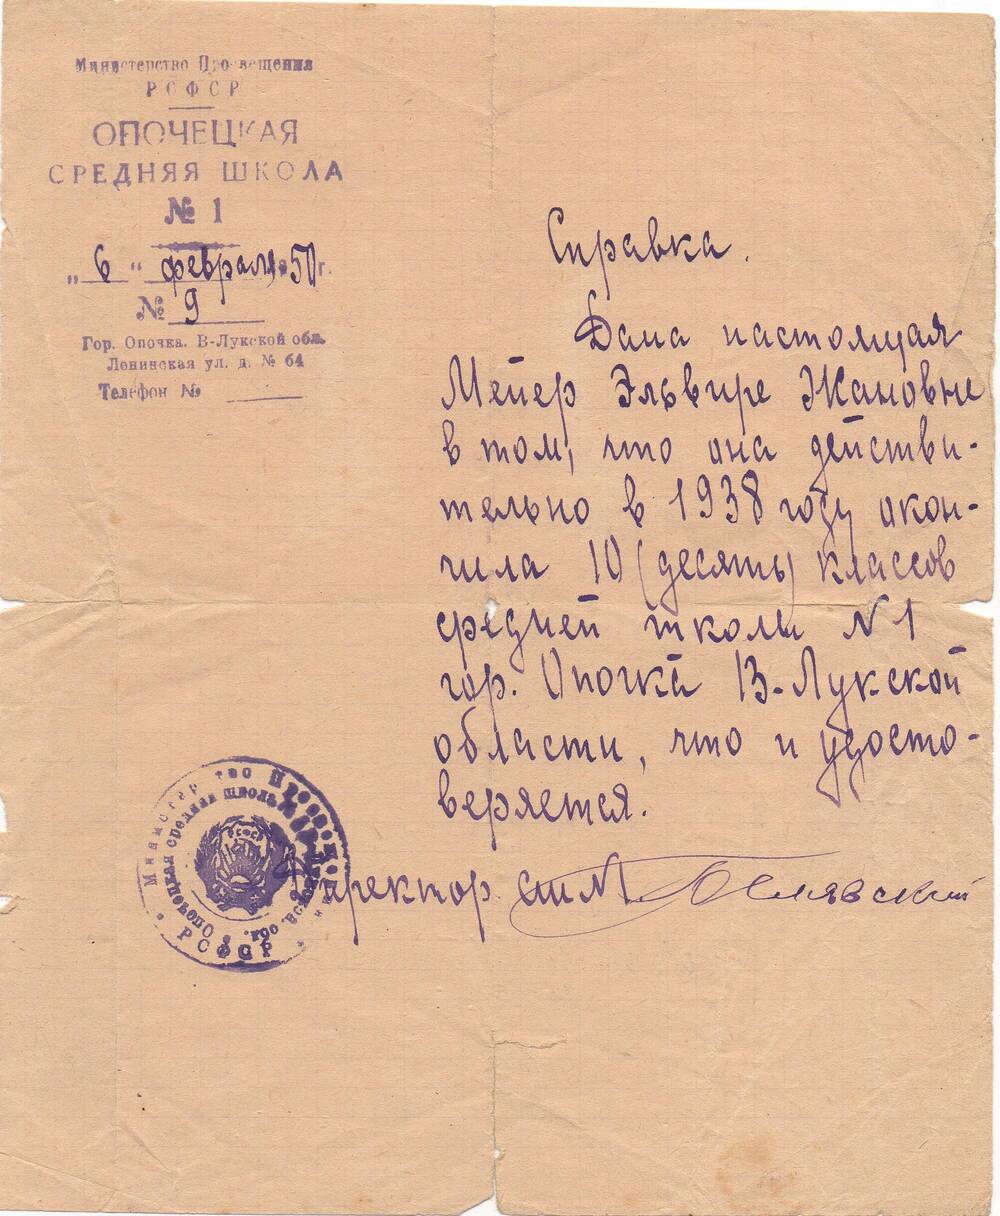 Министерство Просвещения
РСФСР
ОПОЧЕЦКАЯ
СРЕДНЯЯ ШКОЛА
№ 1
„6" февраля 50 г.
№ 9
Гор. Опочка. В-Лукской обл.
Ленинская ул. д. № 64
Телефон №
Справка.
Дана настоящая
Мейер Эльвире Жановне
в том, что она действи-
тельно в 1938 году окон-
чила 10 (десять) классов
средней школы N1
гор. Опочка В-Лукской
области, что и удосто-
веряется.
Директор
Министерство Просвещения
РСФСР
Опочецкая средняя школа №1
обл.
РСФСР